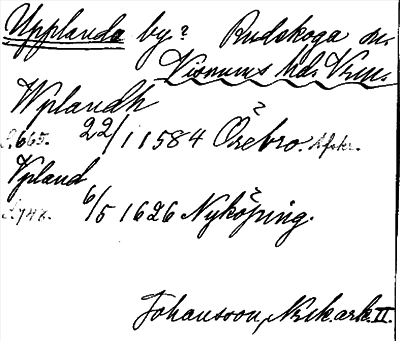 Upplanda by? Rudskoga sn.
Visnums hd. Vrml.
Wplandh
S. 665. 22/1 1584 Örebro. Afskr.
Vpland
6/5 1626 Nyköping.
Johansson, Nrik. ark. II.